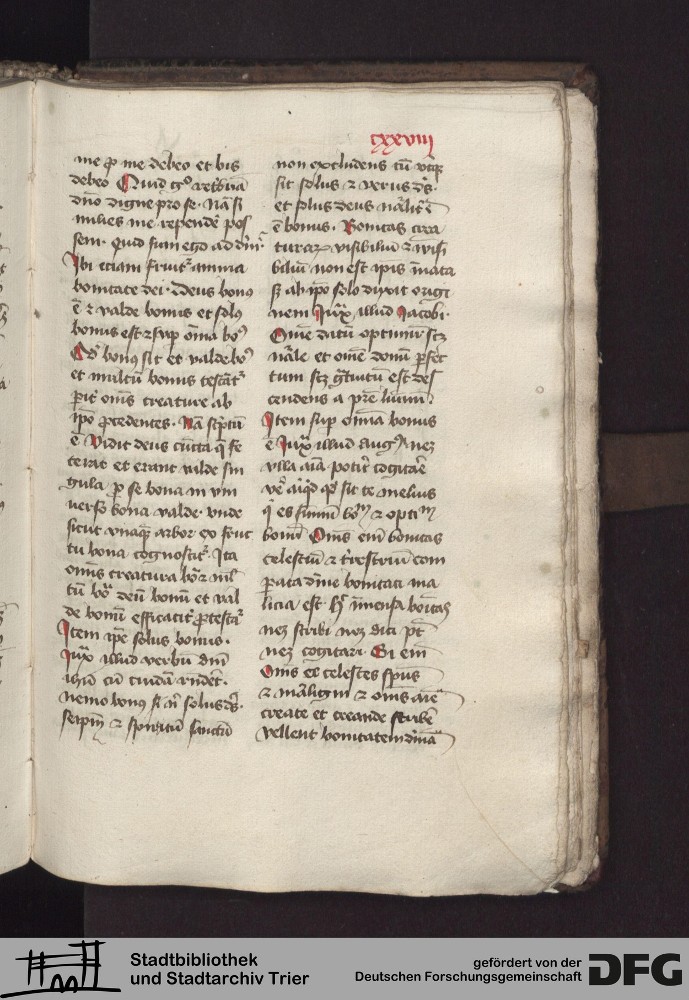 cxxviij
me ꝓ me debeo et bis
debeo Quid gͦ retͥbuā
dn̄o digne pro se. Nā si
milies me rependē pos
sem. Quid sum ego ad dn̄m
Ibi etiam fruit᷑ anima
bonitate dei. Deus bonꝰ
ē ⁊ valde bonus et solꝰ
bonus est ⁊ sup om̄ia boꝰ
bonus sit et valde boꝰ
et multū bonus testāt᷑
om̄s creature ab
ip̄o ꝓcedentes. Nā sc̄ptū
ē Vidit deus cūcta q̄ fe
cerat et erant valde sin
gula ꝑ se bona in vni
uerso bona valde. vnde
sicut vnaq̄ꝫ arbor ex fruc
tu bona cognoscit᷑. Ita
om̄is creatura
tū deū bonū et val
de bonū efficacit᷑ ꝓtestat᷑
Item ip̄e solus bonus.
Iux̄ illud verbū dn̄i
ihū cū cuidā rn̄det.
nemo bonꝰ si n̄ solus dꝰ.
⁊ spiritū sanctū
non excludens cū vtiqꝫ
sit solus ⁊ verus dꝰ.
et solus deus nāliter
ē bonus. Bonitas crea
turaꝝ visibiliū ⁊ invisi
biliū non est ip̄is innata
sꝫ ab ip̄o solo duxit origi
nem Iux̄ illud Iacobi.
Om̄e datū optimū scꝫ
nāle et om̄e donū ꝑfec
tum scꝫ gͣtuitū est des
cendens a pr̄e luminū.
Item sup om̄ia bonus
ē Iux̄ illud augꝰ. Neqꝫ
vlla aīa potuit cogitare
vel aliqͥd qͦd sit te melius
qͥ es summū boꝫ ⁊ optīm
bonū Om̄is em̄ bonitas
celestiū ⁊ t̄restriū com
ꝑata diuine bonitati ma
licia est. immensa boītas
neqꝫ scribi neqꝫ dici pt̄
neqꝫ cogitari. Si em̄
Om̄s celestes sp̄us
⁊ maligni ⁊ om̄s aīe
create et creande scribe
vellent bonitatem diuinā
Stadtbibliothek
und Stadtarchiv Trier
gefördert von der
Deutschen Forschungsgemeinschaft
DFG